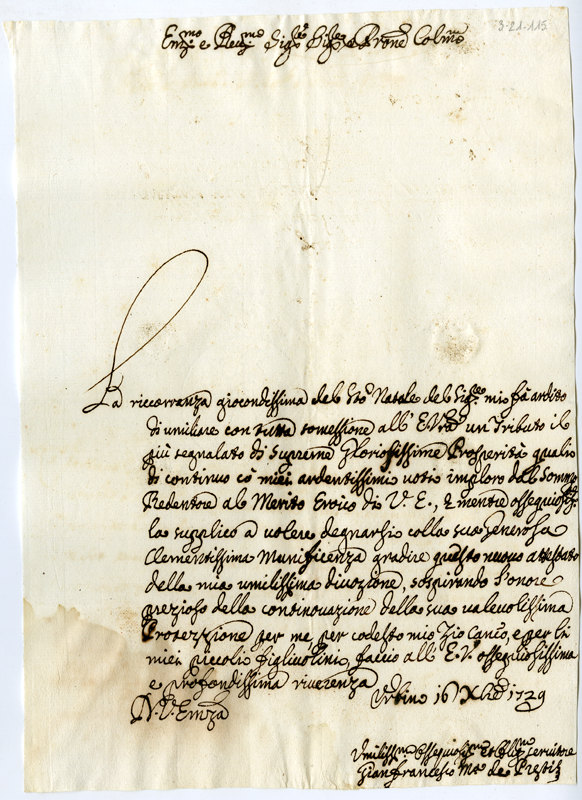 3-21-115
Em.mo e Rev.mo Sig.re Sig.re e Prone Colmo
La riccorranza giocondissima del S.to Natale del Sig.re mi fà ardito
di umiliare con tutta somessione all' E.V. un Tributo il
più segnalato di Supreme Gloriosissime Prosperità quali
di continuo co' miei ardentissimi voti imploro dal Sommo
Redentore al Merito Eroico di V. E., e mentre ossequioso
la supplico a volere degnarsi colla sua Generosa
Clementissima Munificenza gradire questo nuovo attestato
della mia umilissima divozione, sospirando l'onore
prezioso della continovazione della sua valevolissima
Protezzione per me, per codesto mio Zio Can.co, e per li
miei piccoli figliuolini, faccio all' E.V. ossequiosissima
e profondissima riverenza
Urbino 16 Xbre 1729
D. V. Emza
Umiliss.mo Ossequiosis.mo et Obl.mo servitore
Gianfrancesco M.a de Presti